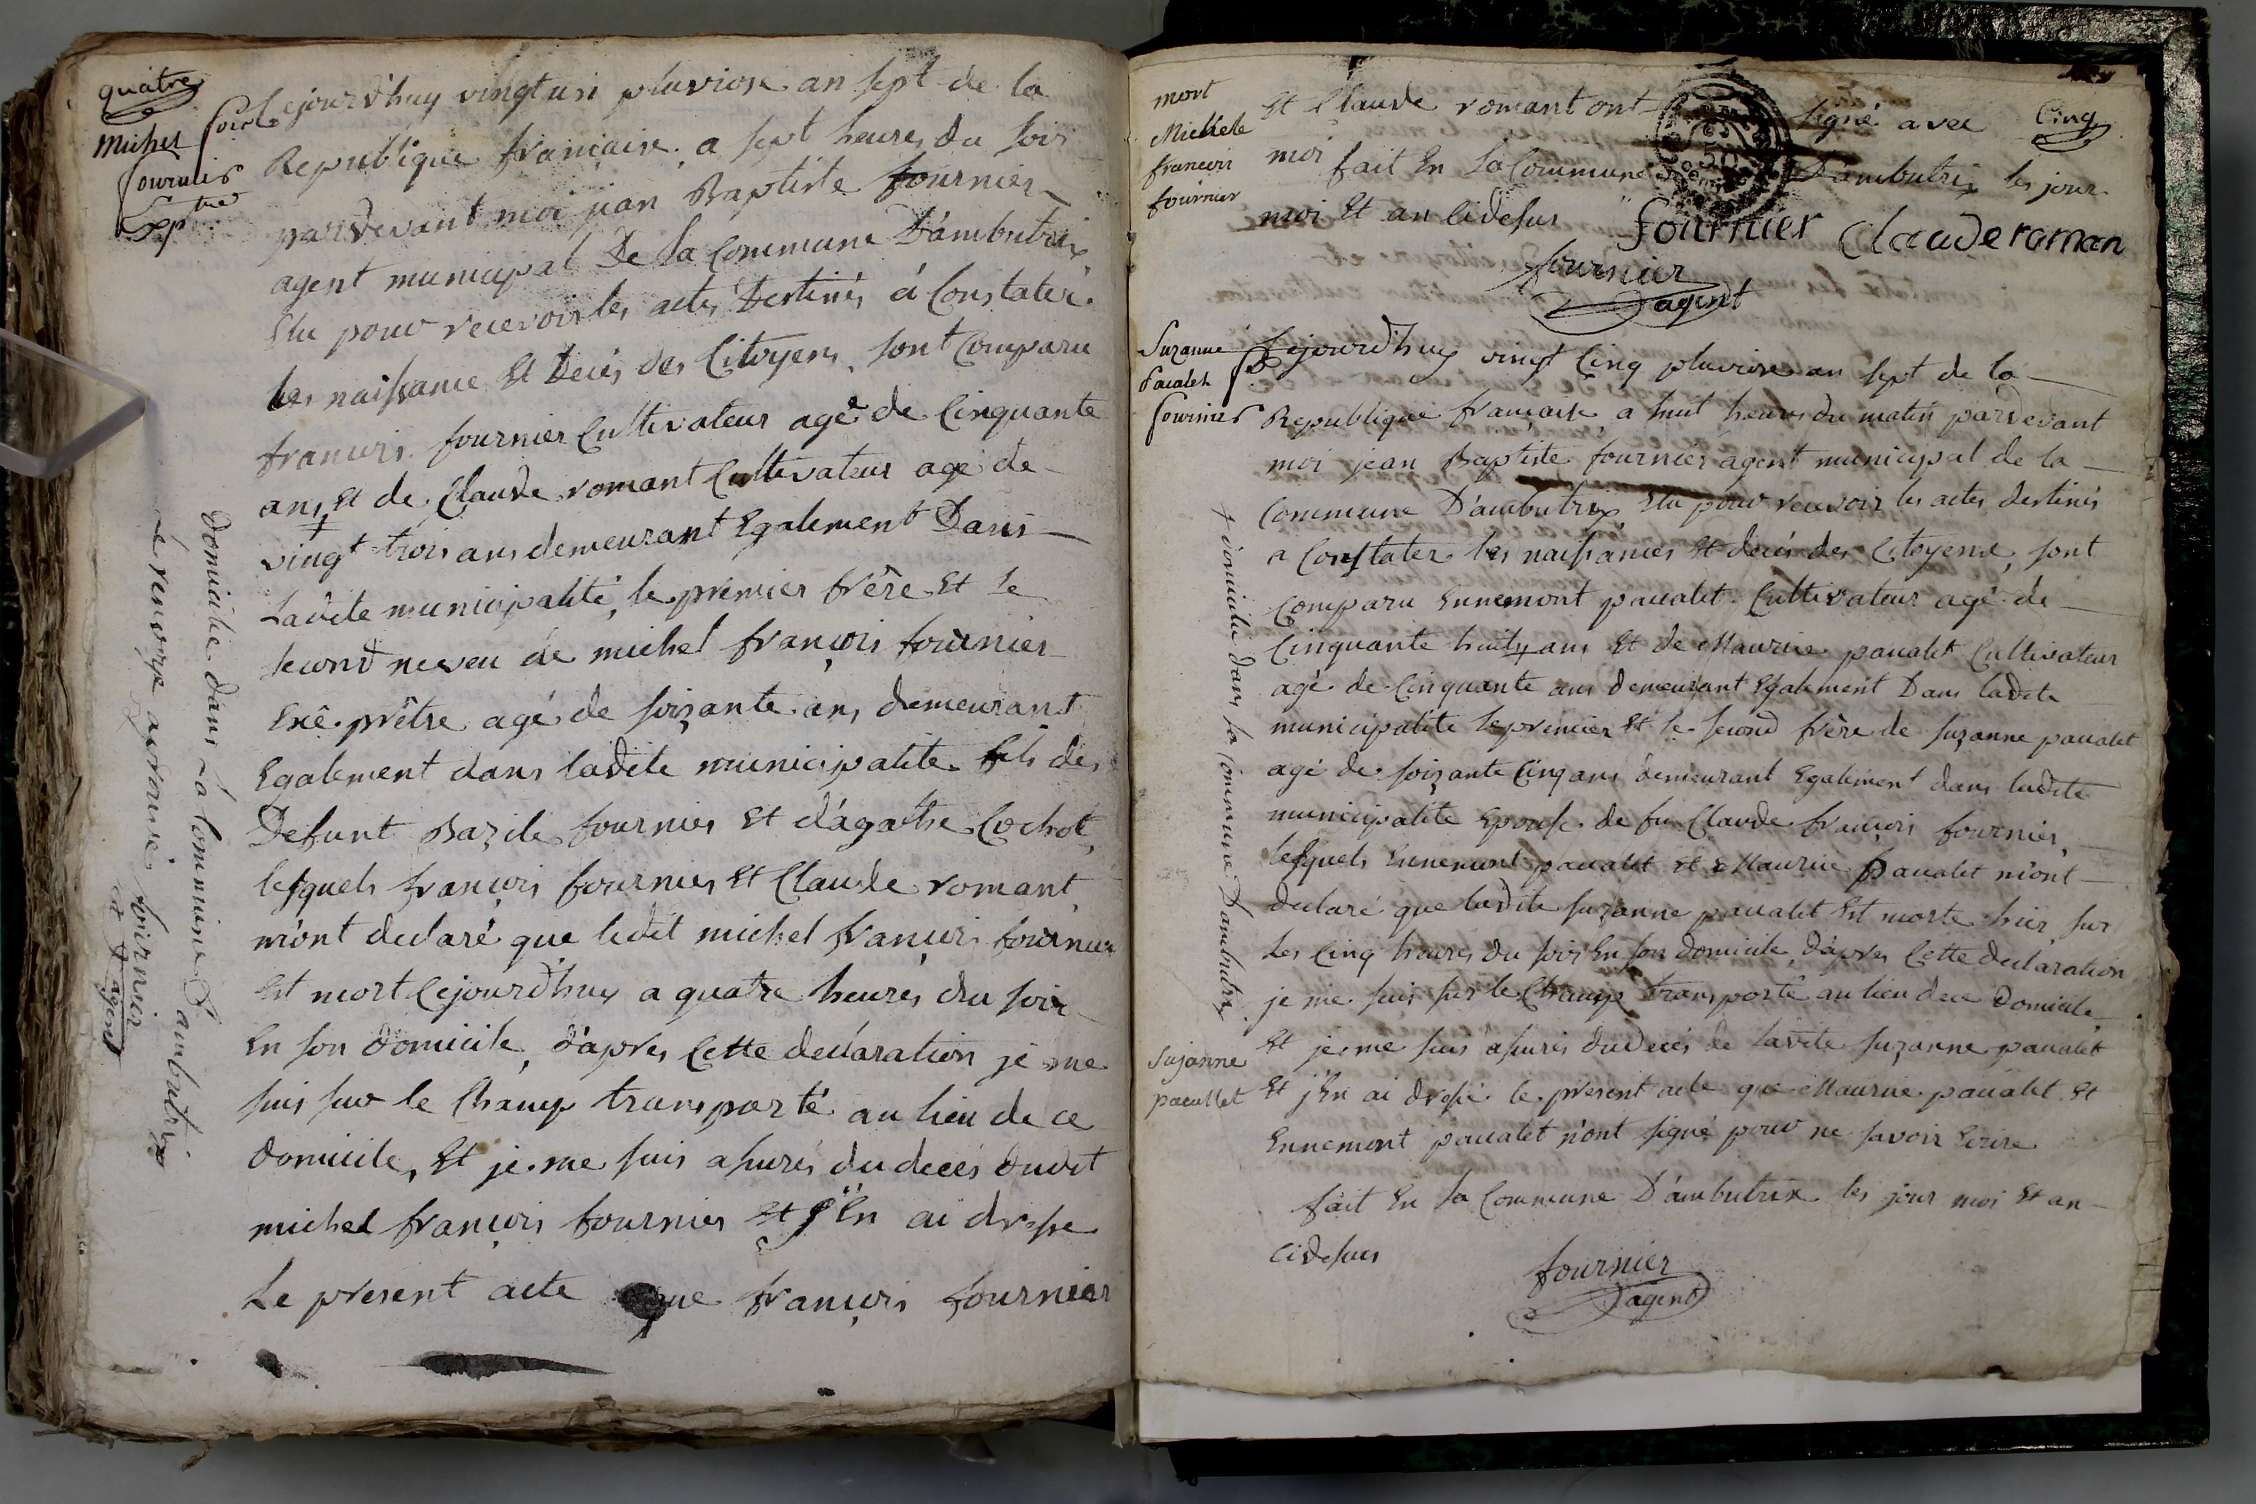 quatre
Michel
fournier
Cejourd'huy vingt un pluviose an sept de la
Republique française, a sept heures du soir
pardevant moi jean Baptiste fournier
agent municipal De la Commune D'ambutrix
Elu pour recevoir les actes Destinés á Constater
les naissance Et Decés des Citoyens, sont Comparu
françois fournier Cultivateur agé de Cinquante
ans Et de Claude romant Cultivateur agé de
vingt trois ans demeurant Egalement Dans
Ladite municipalité, le premier frêre Et le
second neveu de michel françois fournier
Exê-prêtre agé de soixante ans demeurant
Egalement dans ladite municipalite fils de
Defunt Bazile fournier Et d'agathe Cochot,
lesquels françois fournier Et Claude romant
m'ont declaré que ledit michel françois fournier
Est mort Cejourd'huy a quatre heures du soir
En son domicile, d'apres Cette declaration je me
suis sur le Champ transporté au lieu de ce
domicile, Et je me suis assurés du decés dudit
michel françois fournier Et J'En ai dressé
Le present acte que françois fournier
domicilié dans La Commune D'ambutrix
Le renvoye
fournier
agent
mort
Michele
francois
fournier
Et Claude romant ont signé avec
Cinq
moi fait En La Commune D'ambutrix les jour
moi Et an Cidesus
fournier Claude roman
fournier
agent
Suzanne
Paualet
fournier
Cejourd'huy vingt Cinq pluviose an sept de la
Republique française, a huit heures du matin pardevant
moi jean Baptiste fournier agent municipal de la
Commune D'ambutrix Elu pour recevoir les actes destinés
a Constater les naissances Et decés des Citoyens, sont
Comparu Ennemont paualet Cultivateur agé de
Cinquante huit ans Et de Maurice paualet Cultivateur
agé de Cinquante ans demeurant Egalement Dans ladite
municipalite Le premier Et le second frêre de suzanne paualet
agé de soixante Cinq ans demeurant Egalement dans ladite
municipalite Epouse de fu Claude françois fournier,
lesquels Ennemont paualet Et Maurice paualet m'ont
declaré que ladite suzanne paualet Est morte hier sur
Les Cinq heures du soir En son domicile, d'apres Cette declaration
je me suis sur le Champ transporté au lieu de ce domicile,
Et je me suis assurés du decés de ladite suzanne paualet
Et j'En ai dressé le present acte que Maurice paualet Et
Ennemont paualet n'ont signé pour ne savoir Ecrire
fait En la Commune D'ambutrix les jour moi Et an
Cidesus
fournier
agent
domicilié dans la Commune D'ambutrix
Sujanne
pauallet